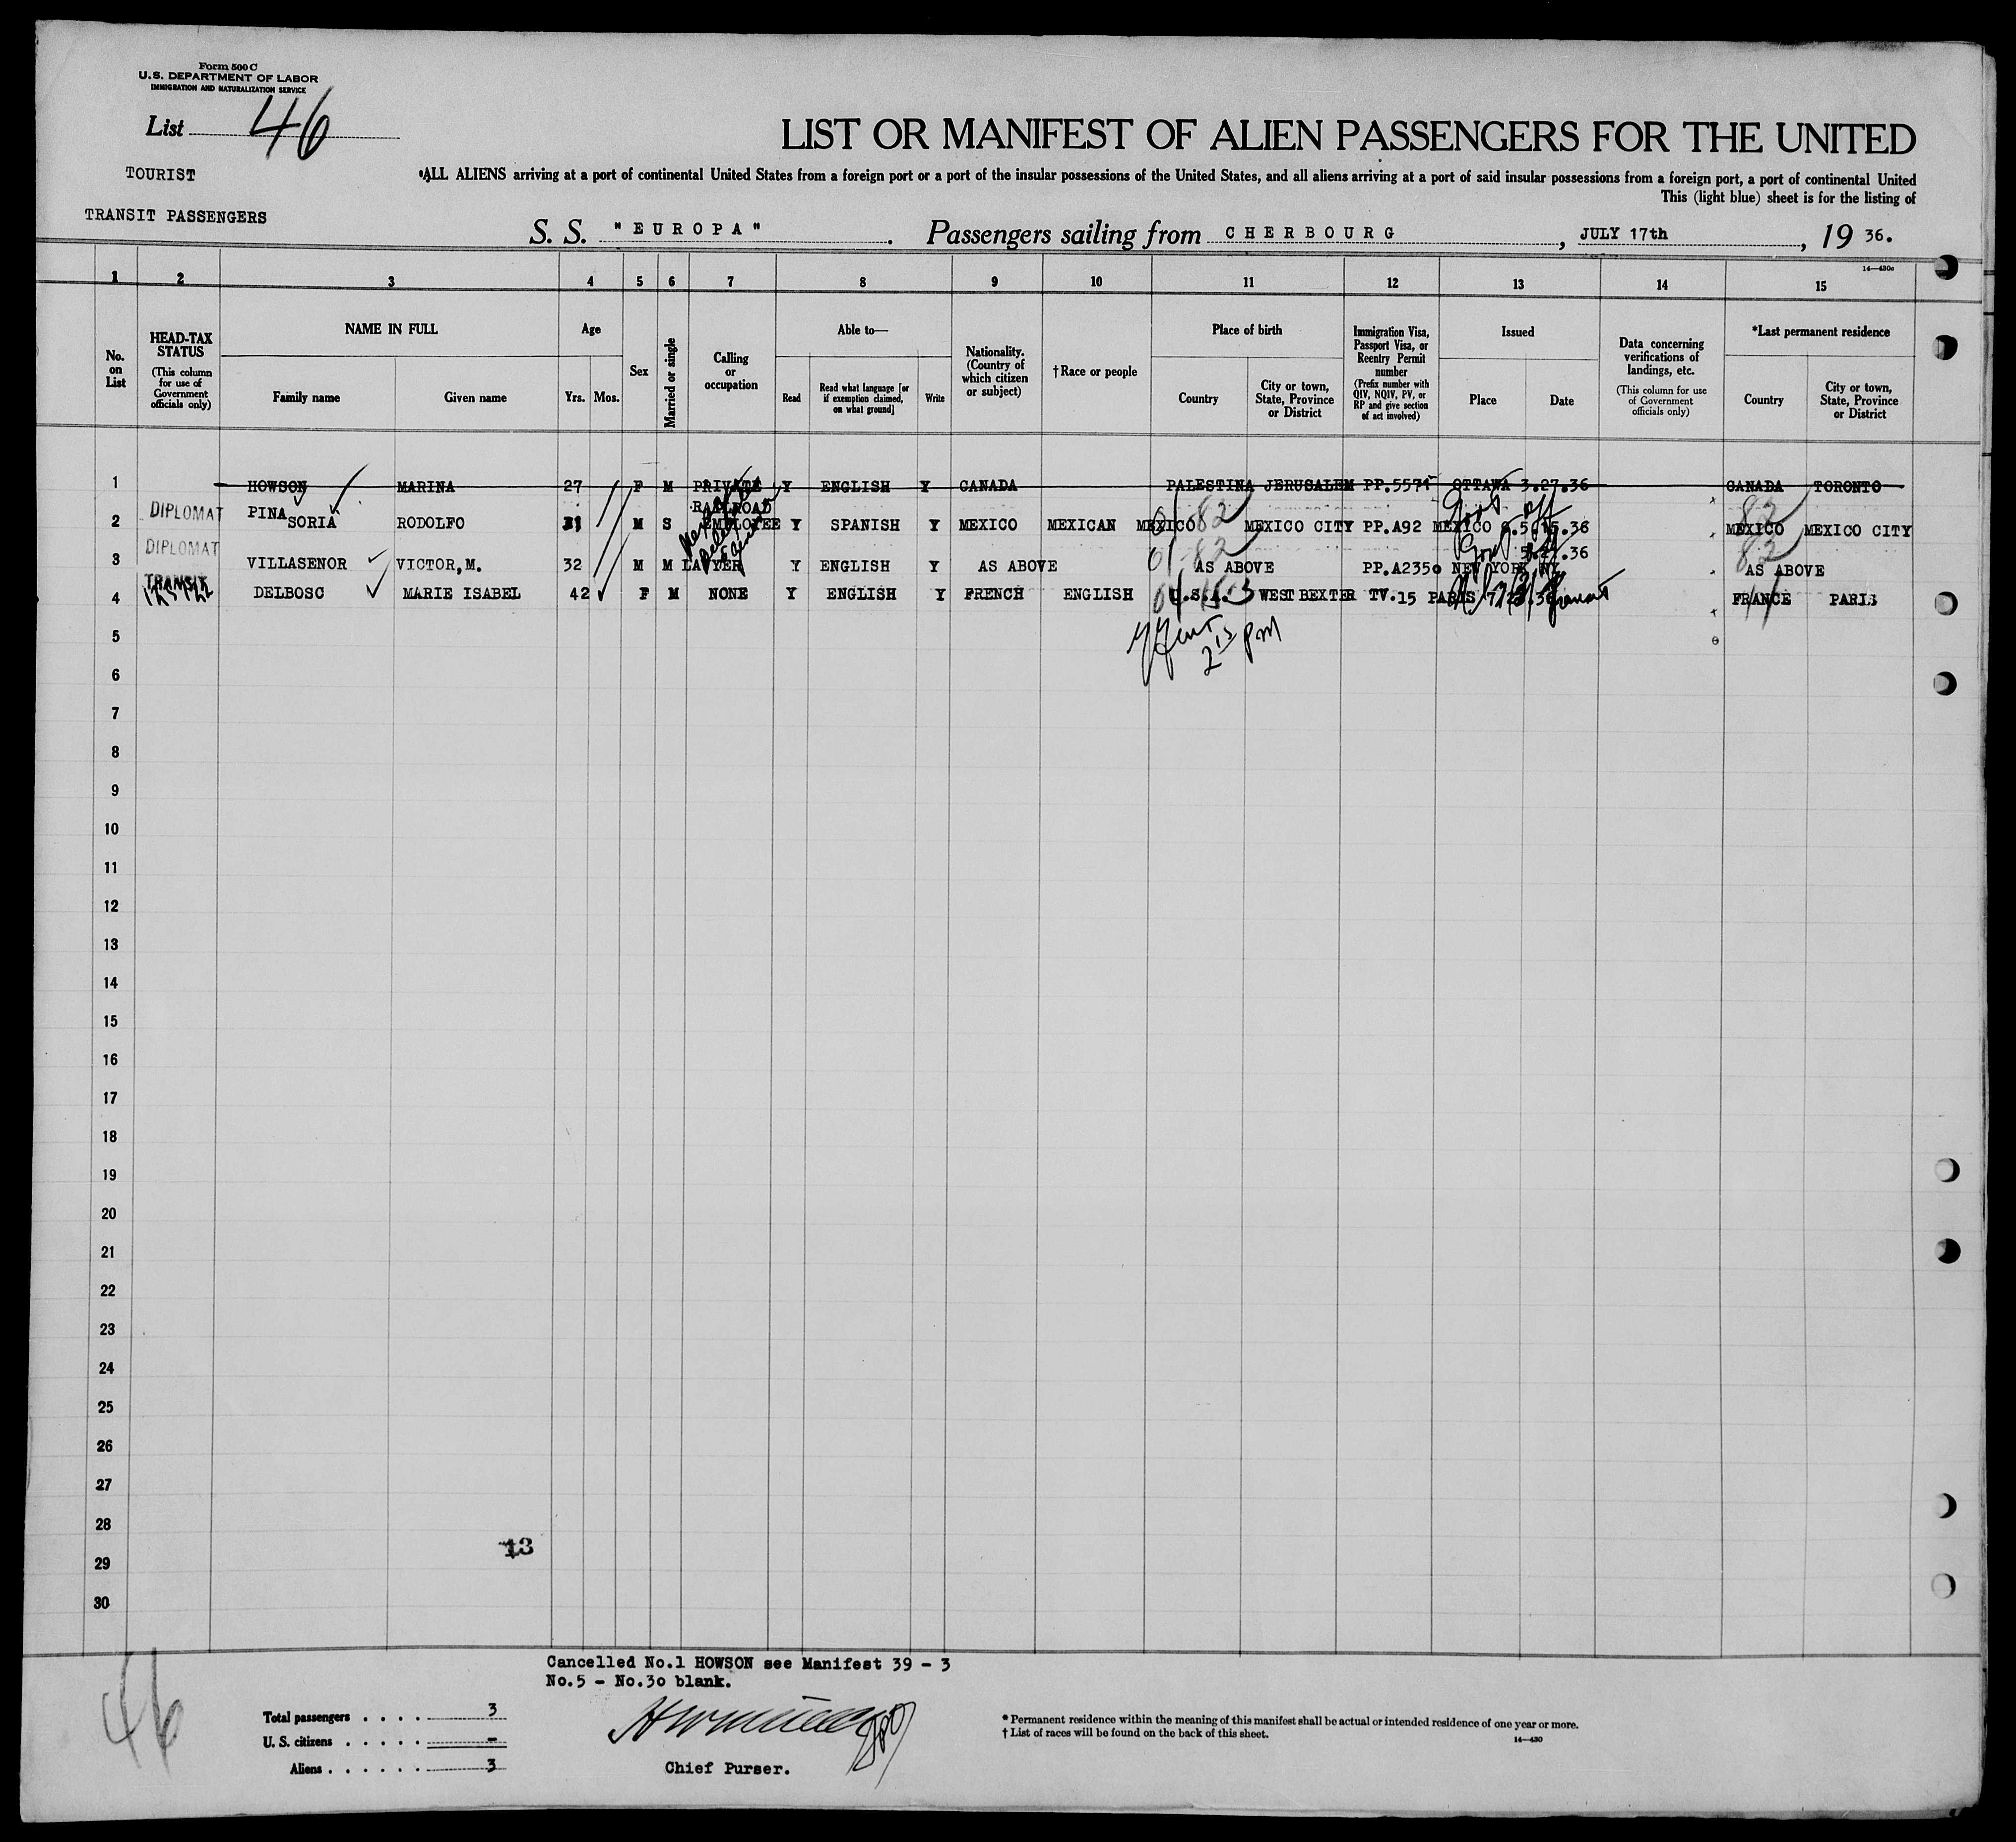 Form 500 C
U.S. DEPARTMENT OF LABOR
IMMIGRATION AND NATURALIZATION SERVICE
List 46
LIST OR MANIFEST OF ALIEN PASSENGERS FOR THE UNITED
TOURIST
ALL ALIENS arriving at a port of continental United States from a foreign port or a port of the insular possessions of the United States, and all aliens arriving at a port of said insular possessions from a foreign port, a port of continental United
This (light blue) sheet is for the listing of
TRANSIT PASSENGERS
S. S. "EUROPA". Passengers sailing from CHERBOURG, JULY 17th, 19 36.
14—430c
1 2 3 4 5 6 7 8 9 10 11 12 13 14 15
No. on List
HEAD-TAX STATUS (This column for use of Government officials only)
NAME IN FULL
Family name Given name
Age
Yrs. Mos.
Sex
Married or single
Calling or occupation
Able to—
Read Read what language [or if exemption claimed, on what ground] Write
Nationality. (Country of which citizen or subject)
†Race or people
Place of birth
Country City or town, State, Province or District
Immigration Visa, Passport Visa, or Reentry Permit number (Prefix number with QIV, NQIV, PV, or RP and give section of act involved)
Issued
Place Date
Data concerning verifications of landings, etc. (This column for use of Government officials only)
*Last permanent residence
Country City or town, State, Province or District
1 HOWSON MARINA 27 F M PRIVATE Y ENGLISH Y CANADA PALESTINA JERUSALEM PP.5571 OTTAWA 3.27.36 CANADA TORONTO
2 DIPLOMAT PINA SORIA RODOLFO M S RAILROAD EMPLOYEE Y SPANISH Y MEXICO MEXICAN MEXICO MEXICO CITY PP.A92 MEXICO MEXICO MEXICO CITY
01 82 Govt off 82
3 DIPLOMAT VILLASENOR VICTOR,M. 32 M M LAWYER Y ENGLISH Y AS ABOVE AS ABOVE PP.A2350 NEW YORK NY AS ABOVE
01-82 Govt off 82
4 TRANSIT DELBOSC MARIE ISABEL 42 F M NONE Y ENGLISH Y FRENCH ENGLISH U.S.A. WEST BEXTER TV.15 PARIS FRANCE PARIS
Transit
2 15 pm
5
6
7
8
9
10
11
12
13
14
15
16
17
18
19
20
21
22
23
24
25
26
27
28
13
29
30
46
Cancelled No.1 HOWSON see Manifest 39 - 3
No.5 - No.30 blank.
Total passengers . . . . 3
U. S. citizens . . . . . -
Aliens . . . . . . 3
Chief Purser.
* Permanent residence within the meaning of this manifest shall be actual or intended residence of one year or more.
† List of races will be found on the back of this sheet.
14—430